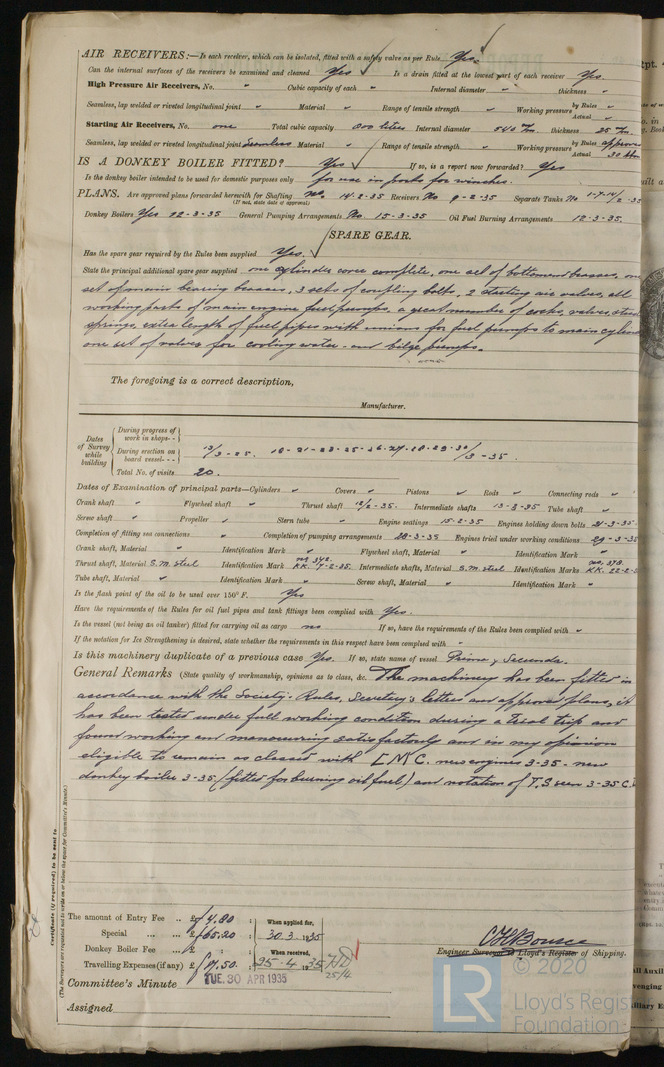 AIR RECEIVERS:—Is each receiver, which can be isolated, fitted with a safety valve as per Rule Yes.
Can the internal surfaces of the receivers be examined and cleaned Yes Is a drain fitted at the lowest part of each receiver Yes.
High Pressure Air Receivers, No. " Cubic capacity of each " Internal diameter " thickness "
Seamless, lap welded or riveted longitudinal joint " Material " Range of tensile strength " Working pressure by Rules " Actual "
Starting Air Receivers, No. one Total cubic capacity litres Internal diameter 540 m/m. thickness 25 m/m.
Seamless, lap welded or riveted longitudinal joint Seamless Material " Range of tensile strength " Working pressure by Rules approved Actual 30
IS A DONKEY BOILER FITTED? Yes If so, is a report now forwarded? Yes
Is the donkey boiler intended to be used for domestic purposes only for use in ports for winches.
PLANS. Are approved plans forwarded herewith for Shafting No. 14-2-35 Receivers No 9-2-35 Separate Tanks No
(If not, state date of approval)
Donkey Boilers Yes 22-3-35 General Pumping Arrangements No. 15-3-35 Oil Fuel Burning Arrangements 12-3-35.
SPARE GEAR.
Has the spare gear required by the Rules been supplied Yes.
State the principal additional spare gear supplied one cylinder cover complete, one set of bottom end brasses, one
set of main bearing brasses, 3 sets of coupling bolts, 2 starting air valves, all
working parts of main engine fuel pumps, a great number of cocks, valves,
springs, extra length of fuel pipes with unions for fuel pumps to main
one set of valves for cooling water - and bilge pumps.
The foregoing is a correct description,
Manufacturer.
Dates of Survey while building
During progress of work in shops--
During erection on board vessel--- 12/3-35. 18-21-22-25-26-27-28-29-30/3-35.
Total No. of visits 20.
Dates of Examination of principal parts—Cylinders " Covers " Pistons " Rods " Connecting rods "
Crank shaft " Flywheel shaft " Thrust shaft 12/2-35. Intermediate shafts 13-3-35 Tube shaft "
Screw shaft " Propeller " Stern tube " Engine seatings 15-2-35 Engines holding down bolts 21-3-35
Completion of fitting sea connections " Completion of pumping arrangements 28-3-35 Engines tried under working conditions 29-3-35
Crank shaft, Material " Identification Mark " Flywheel shaft, Material " Identification Mark "
Thrust shaft, Material S.M. Steel Identification Mark No 342. KK. 7-2-35. Intermediate shafts, Material S.M. steel Identification Marks No. 378. KK. 22-2-
Tube shaft, Material " Identification Mark " Screw shaft, Material " Identification Mark "
Is the flash point of the oil to be used over 150° F. Yes
Have the requirements of the Rules for oil fuel pipes and tank fittings been complied with Yes.
Is the vessel (not being an oil tanker) fitted for carrying oil as cargo no If so, have the requirements of the Rules been complied with "
If the notation for Ice Strengthening is desired, state whether the requirements in this respect have been complied with "
Is this machinery duplicate of a previous case Yes. If so, state name of vessel Prima, Secunda.
General Remarks (State quality of workmanship, opinions as to class, &c. The machinery has been fitted in
accordance with the Society's Rules, Secretary's letters and approved plans, it
has been tested under full working condition during a trial trip and
found working and manoeuvring satisfactorily and in my opinion
eligible to remain as classed with LMC. new engines 3-35 - new
donkey boiler 3-35 (fitted for burning oil fuel) and notation of T.S seen 3-35 C.L
Certificate (if required) to be sent to
(The Surveyors are requested not to write on or below the space for Committee's Minute.)
The amount of Entry Fee .. £ 4.80 : When applied for,
Special ... ... £ 65.20 : 30.3.1935
Donkey Boiler Fee £ : : When received,
Travelling Expenses (if any) £ 17.50 : 25-4-1935 25/4
Engineer Surveyor to Lloyd's Register of Shipping.
Committee's Minute TUE. 30 APR 1935
Assigned
© 2020
LR
Lloyd's Regis
Foundation